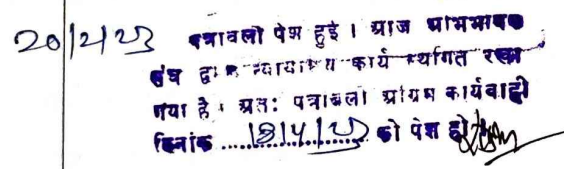 20/2/23 पत्रावली पेश हुई । आज अभिभाषक
संघ द्वारा न्यायालय कार्य स्थगित रखा
गया है । अतः पत्रावली अग्रिम कार्यवाही
दिनांक ......18/4/23 को पेश हो